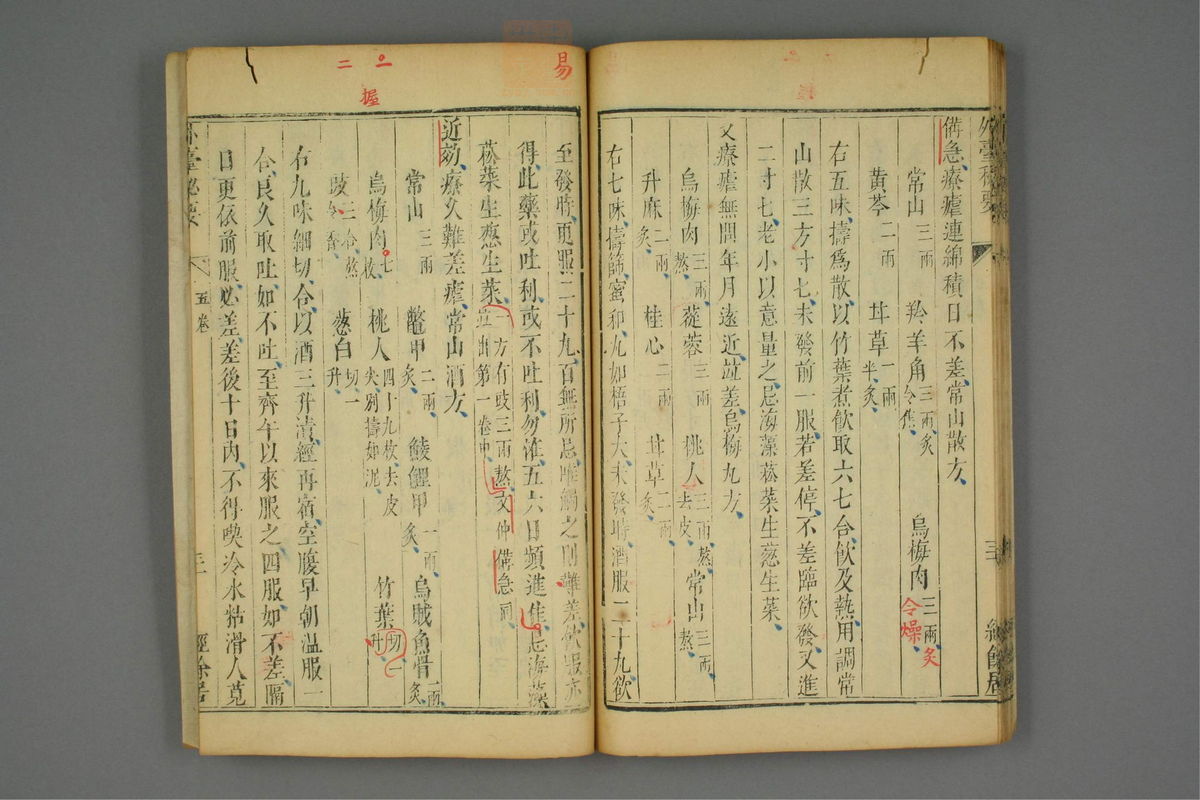 外臺秘要
備急療瘧連綿積日不差常山散方
常山三兩 羚羊角三兩炙令焦 烏梅肉三兩炙令燥
黃芩二兩 甘草一兩半炙
右五味擣爲散以竹葉煮飲取六七合飲及熱用調常
山散三方寸七未發前一服若差停不差臨欲發又進
二寸七老小以意量之忌海藻菘菜生葱生菜
又療瘧無問年月遠近並差烏梅丸方
烏梅肉三兩熬 蓯蓉三兩 桃人三兩熬去皮 常山三兩熬
升麻二兩炙 桂心二兩 甘草二兩炙
右七味擣篩蜜和丸如梧子大未發時酒服二十丸欲
易
至發時更服二十丸百無所忌唯觸之則難差欲服亦
得此藥或吐利或不吐利勿淮五六日頻進佳忌海藻
菘菜生葱生菜一方有豉三兩熬文仲備急同並出第一卷中
近効療久難差瘧常山酒方
常山三兩 鼈甲二兩炙 鯪鯉甲一兩炙 烏賊魚骨一兩炙
烏梅肉七枚 桃人四十九枚去皮尖別擣如泥 竹葉切一升
豉三合熬令香 葱白切一升
右九味細切合以酒三升漬經再宿空腹早朝温服一
合良久取吐如不吐至齊午以來服之四服如不差隔
日更依前服必差差後十日内不得喫冷水粘滑人莧
外臺秘要 五卷 經餘居
二一
握